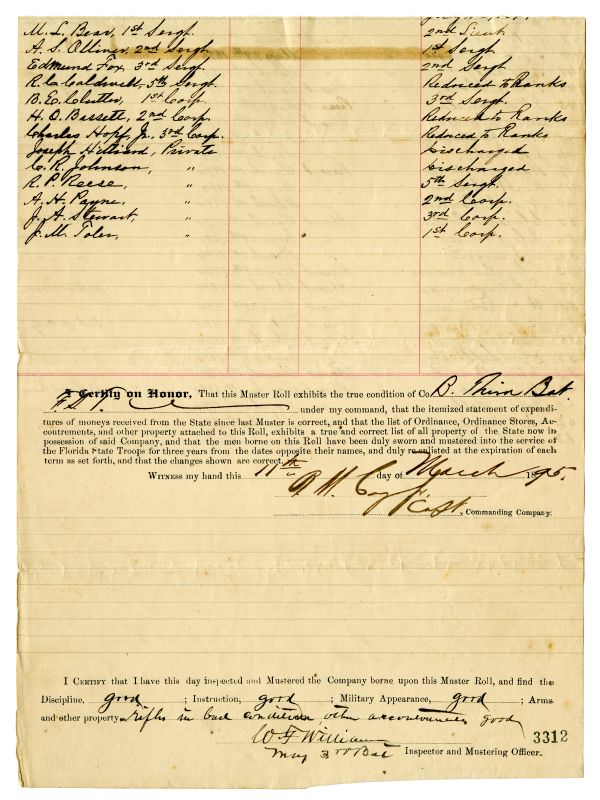 M. L. Bear, 1st Sergt. 2nd Lieut
A. S. Olliver, 2nd Sergt. 1st Sergt.
Edmund Fox, 3rd Sergt. 2nd Sergt
R. C. Coldwell, 5th Sergt. Reduced to Ranks
B. E. Clutter, 1st Corp. 3rd Sergt.
H. O. Bassett, 2nd Corp. Reduced to Ranks
Charles Hopf Jr. 3rd Corp. Reduced to Ranks
Joseph Hilliard, Private Discharged
C. R. Johnson, " Discharged
R. P. Reese, " 5th Sergt.
A. H. Payne, " 2nd Corp.
J. A. Stewart, " 3rd Corp.
J. M. Toler, " 1st Corp.
I Certify on Honor, That this Muster Roll exhibits the true condition of Co. B. Third Bat.
F. S. T. under my command, that the itemized statement of expendi-
tures of moneys received from the State since last Muster is correct, and that the list of Ordinance, Ordinance Stores, Ac-
coutrements, and other property attached to this Roll, exhibits a true and correct list of all property of the State now in
possession of said Company, and that the men borne on this Roll have been duly sworn and mustered into the service of
the Florida State Troops for three years from the dates opposite their names, and duly re-enlisted at the expiration of each
term as set forth, and that the changes shown are correct.
Witness my hand this 11th day of March 1895.
Capt. Commanding Company.
I Certify that I have this day inspected and Mustered the Company borne upon this Muster Roll, and find the
Discipline, good; Instruction, good; Military Appearance, good; Arms
and other property Rifles in bad condition, other accoutrements good
W F Williams
Maj 3rd Bat Inspector and Mustering Officer.
3312